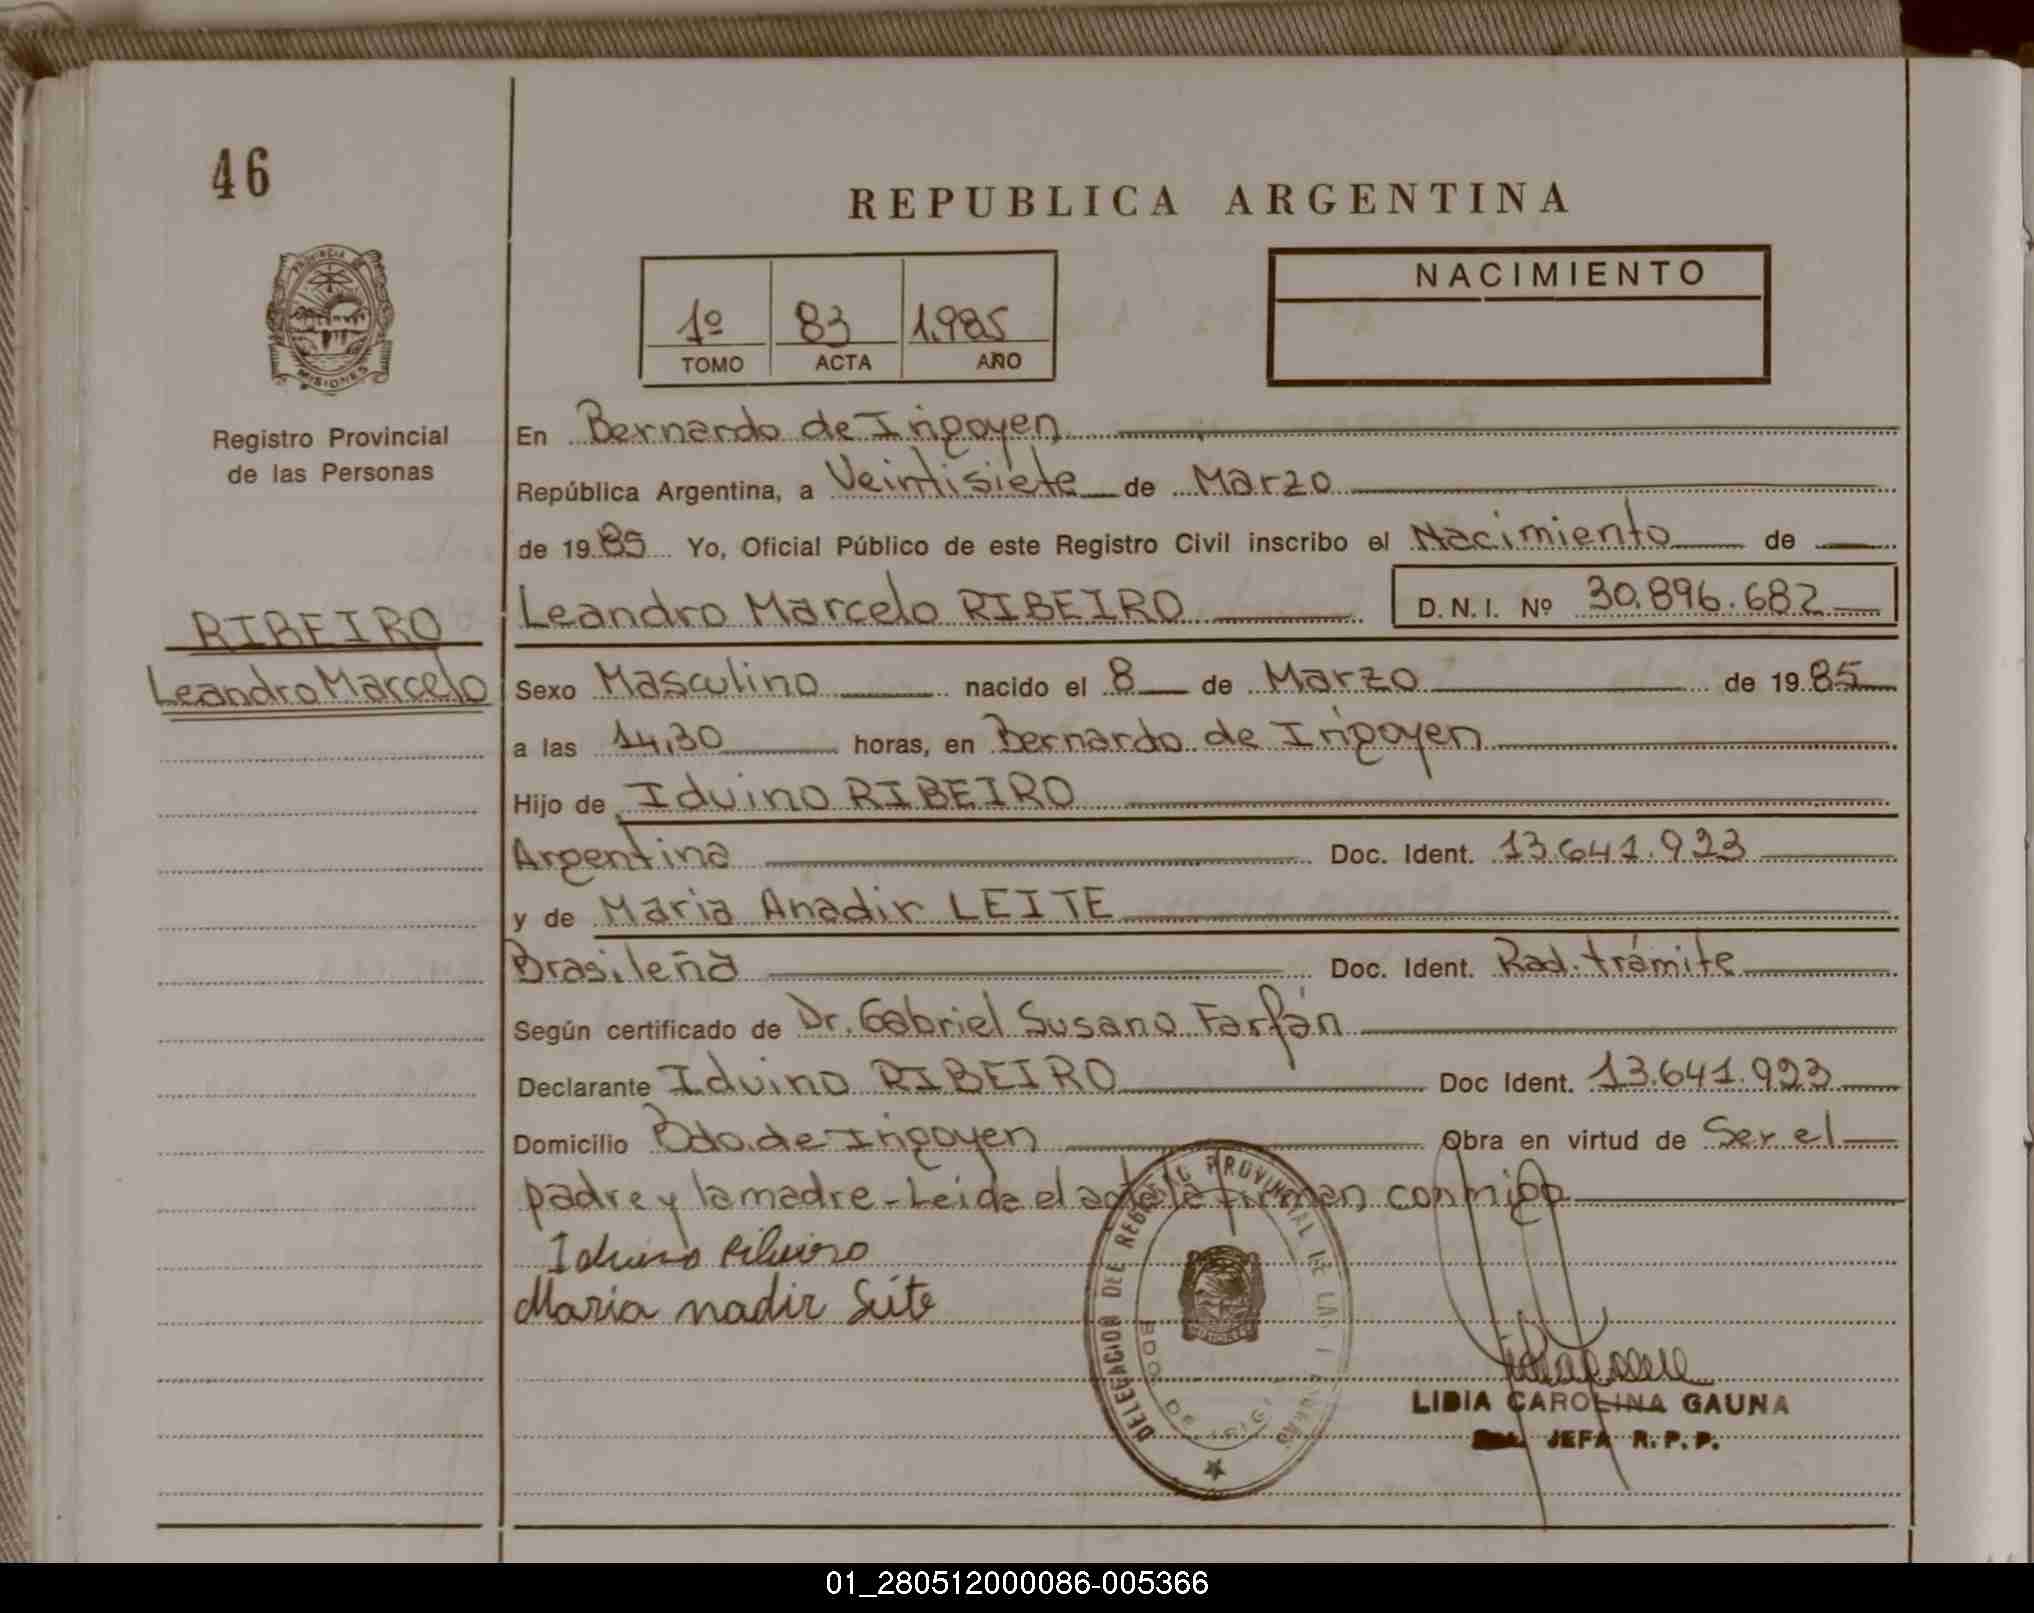 46
REPUBLICA ARGENTINA
PROVINCIA DE
MISIONES
Registro Provincial
de las Personas
1º 83 1.985
TOMO ACTA AÑO
NACIMIENTO
En Bernardo de Irigoyen
República Argentina, a Veintisiete de Marzo
de 19 85 Yo, Oficial Público de este Registro Civil inscribo el Nacimiento de
RIBEIRO
Leandro Marcelo
Leandro Marcelo RIBEIRO D.N.I. Nº 30.896.682
Sexo Masculino nacido el 8 de Marzo de 19 85
a las 14,30 horas, en Bernardo de Irigoyen
Hijo de Iduino RIBEIRO
Argentina Doc. Ident. 13.641.923
y de Maria Anadir LEITE
Brasileña Doc. Ident. Rad. trámite
Según certificado de Dr. Gabriel Susano Farfán
Declarante Iduino RIBEIRO Doc Ident. 13.641.923
Domicilio Bdo. de Irigoyen Obra en virtud de Ser el
padre y la madre - Leida el acta la firman conmigo
Iduino Ribeiro
Maria nadir Leite
DELEGACION DEL REGISTRO PROVINCIAL DE LAS
BDO. DE
LIDIA CAROLINA GAUNA
JEFA R.P.P.
01_280512000086-005366